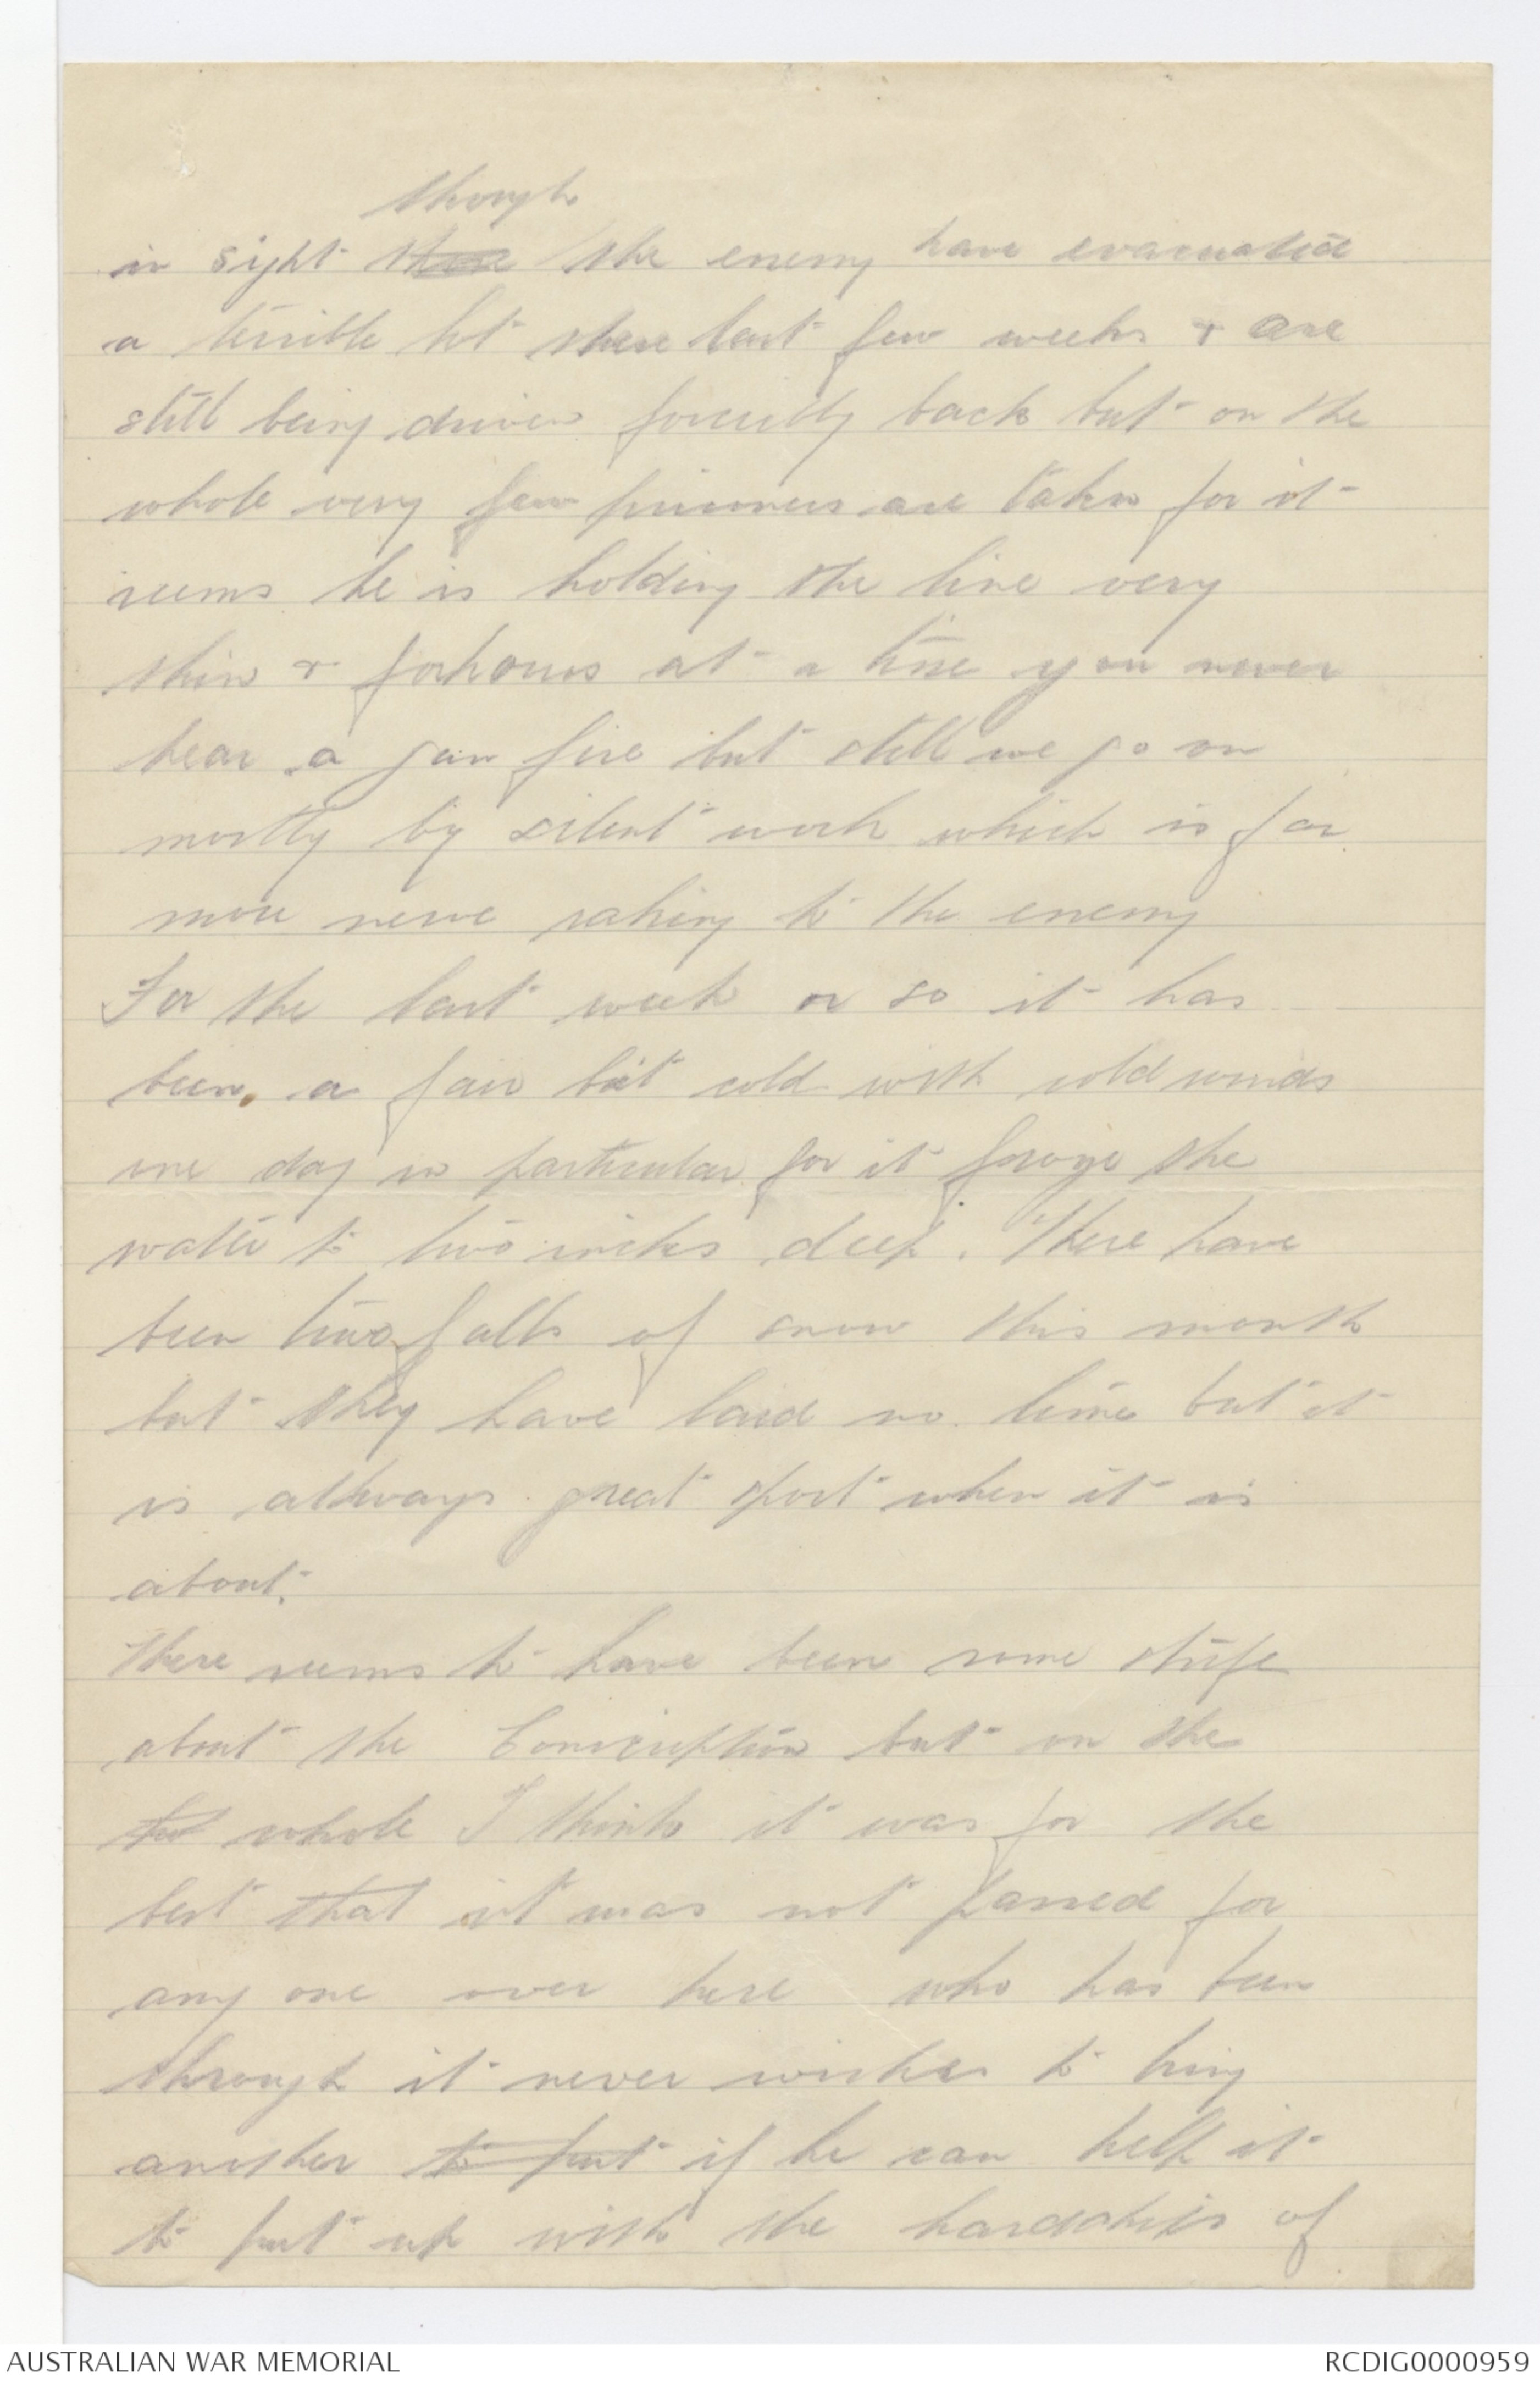 though
in sight the enemy have evacuated
a terrible lot these last few weeks & are
still being driven forcibly back but on the
whole very few prisoners are taken for it
seems he is holding the line very
thin & for hours at a time you never
hear a gun fire but still we go on
mostly by silent work which is far
more nerve raking to the enemy
For the last week or so it has
been, a fair bit cold with cold winds
one day in particular for it froze the
water to two inches deep. There have
been two falls of snow this month
but they have laid no time but it
is allways great sport when it is
about.
There seems to have been some strife
about the Conscription but on the
whole I think it was for the
best that it was not passed for
any one over here who has been
through it never wishes to bring
another to put if he can help it
to put up with the hardships of
AUSTRALIAN WAR MEMORIAL
RCDIG0000959